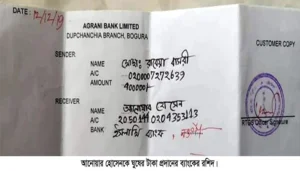 DATE: 12/12/19
ADRANI BANK LIMITED
DUPCHANCHIA BRANCH, BOGURA
CUSTOMER COPY
SENDER
NAME মোছাঃ রাবেয়া বাসরী
A/C 0200007272639
AMOUNT 400000/-
RECEIVER
NAME আনোয়ার হোসেন
A/C
BANK ইসলামী ব্যাংক,
Signature
আনোয়ার হোসেনকে ঘুষের টাকা প্রদানের ব্যাংকের রশিদ।